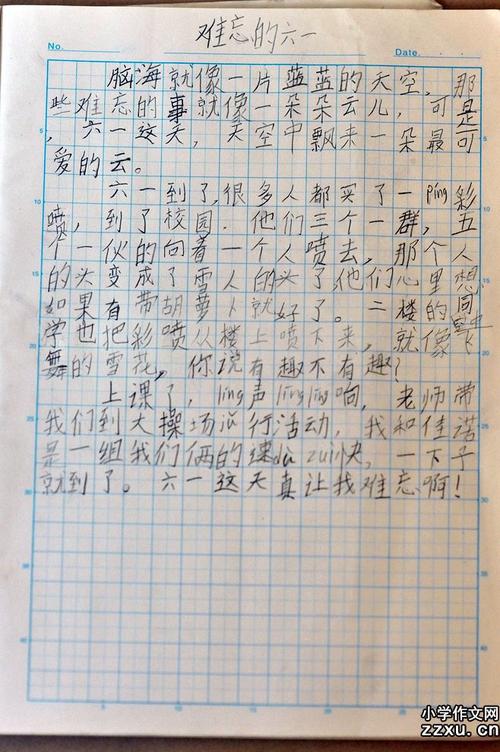 难忘的六一
No.
Date.
脑海就像一片蓝蓝的天空，那
些难忘的事就像一朵朵云儿，可是
，六一这天，天空中飘来一朵最可
爱的云。
六一到了，很多人都买了一píng彩
喷，到了校园．他们三个一群，五
个一伙的向着一个人喷去，那个人
的头变成了雪人的头了，他们心里想
如果有带胡萝卜就好了。二楼的同
学也把彩喷从楼上喷下来，就像空中飞
舞的雪花，你说有趣不有趣？
上课了，líng声líng líng响，老师带
我们到大操场 行活动，我和佳诺
是一组我们俩的速dù zuì快，一下子
就到了。六一这天真让我难忘啊！
5
10
15
20
25
30
35
40
小学作文网
zzxu.cn